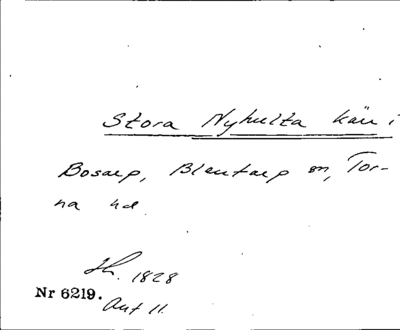 Stora Nyhulta kärr i
Bosarp, Blentarp sn, Tor-
na hd.
1828
Nr 6219.
Ant 11.